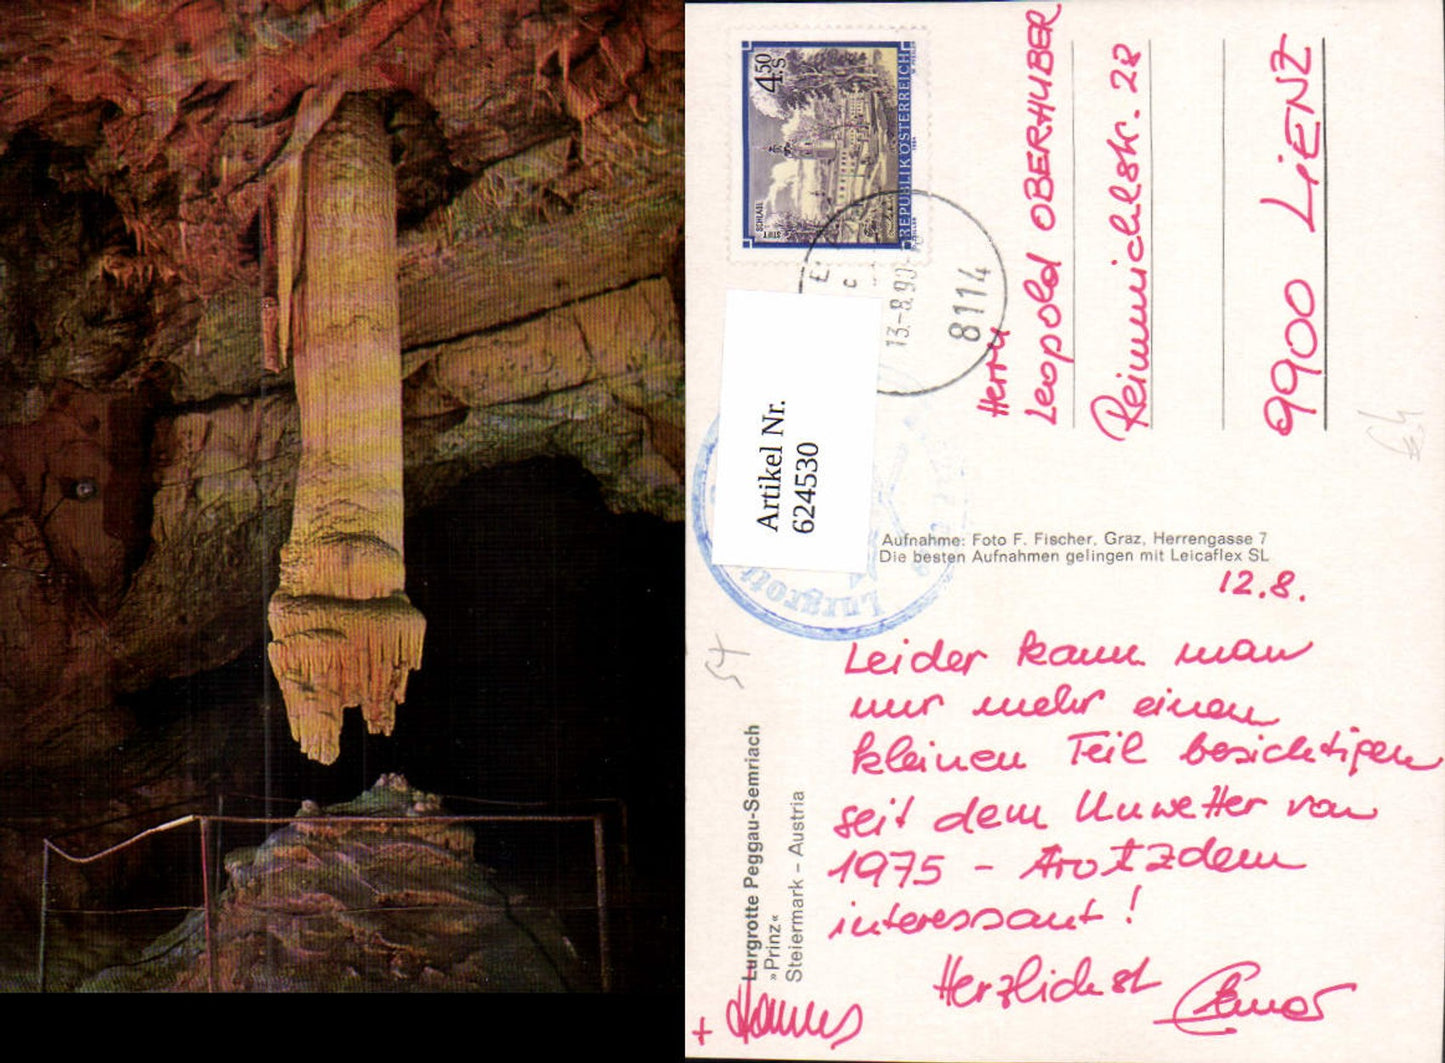 4.50
S
STIFT
SCHLÄGL
REPUBLIK ÖSTERREICH
13.-8.90
8114
Artikel Nr.
624530
Lurgrotte
Herrn
Leopold OBERHUBER
Reimmichlstr. 28
9900 LiENZ
Aufnahme: Foto F. Fischer, Graz, Herrengasse 7
Die besten Aufnahmen gelingen mit Leicaflex SL
12.8.
Leider kann man
nur mehr einen
kleinen Teil besichtigen
seit dem Unwetter von
1975 - trotzdem
interessant!
Herzlichst
+ Hannes
Lurgrotte Peggau-Semriach
»Prinz«
Steiermark – Austria